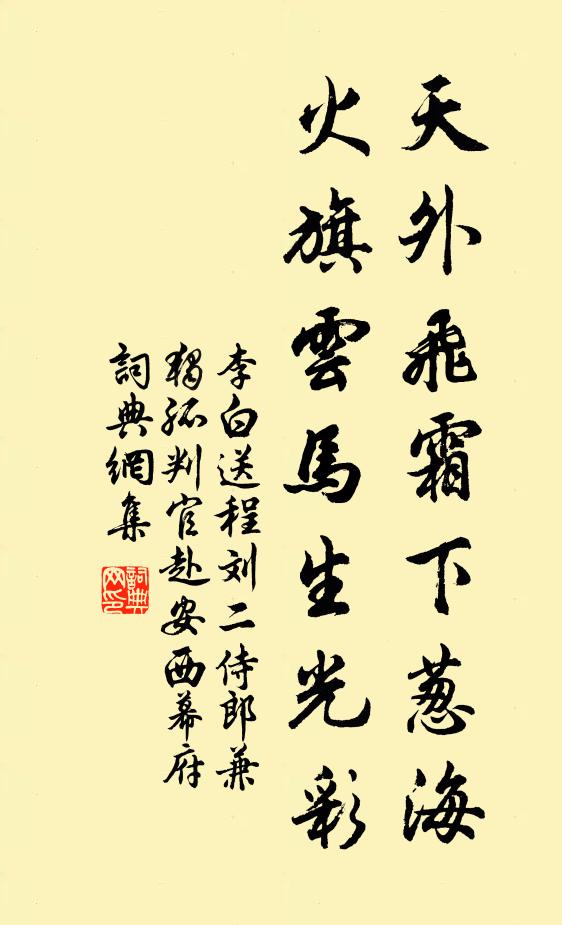 天外飛霜下葱海
火旗雲馬生光彩
李白送程刘二侍郎兼
獨孤判官赴安西幕府
詞典網集
詞典
网印